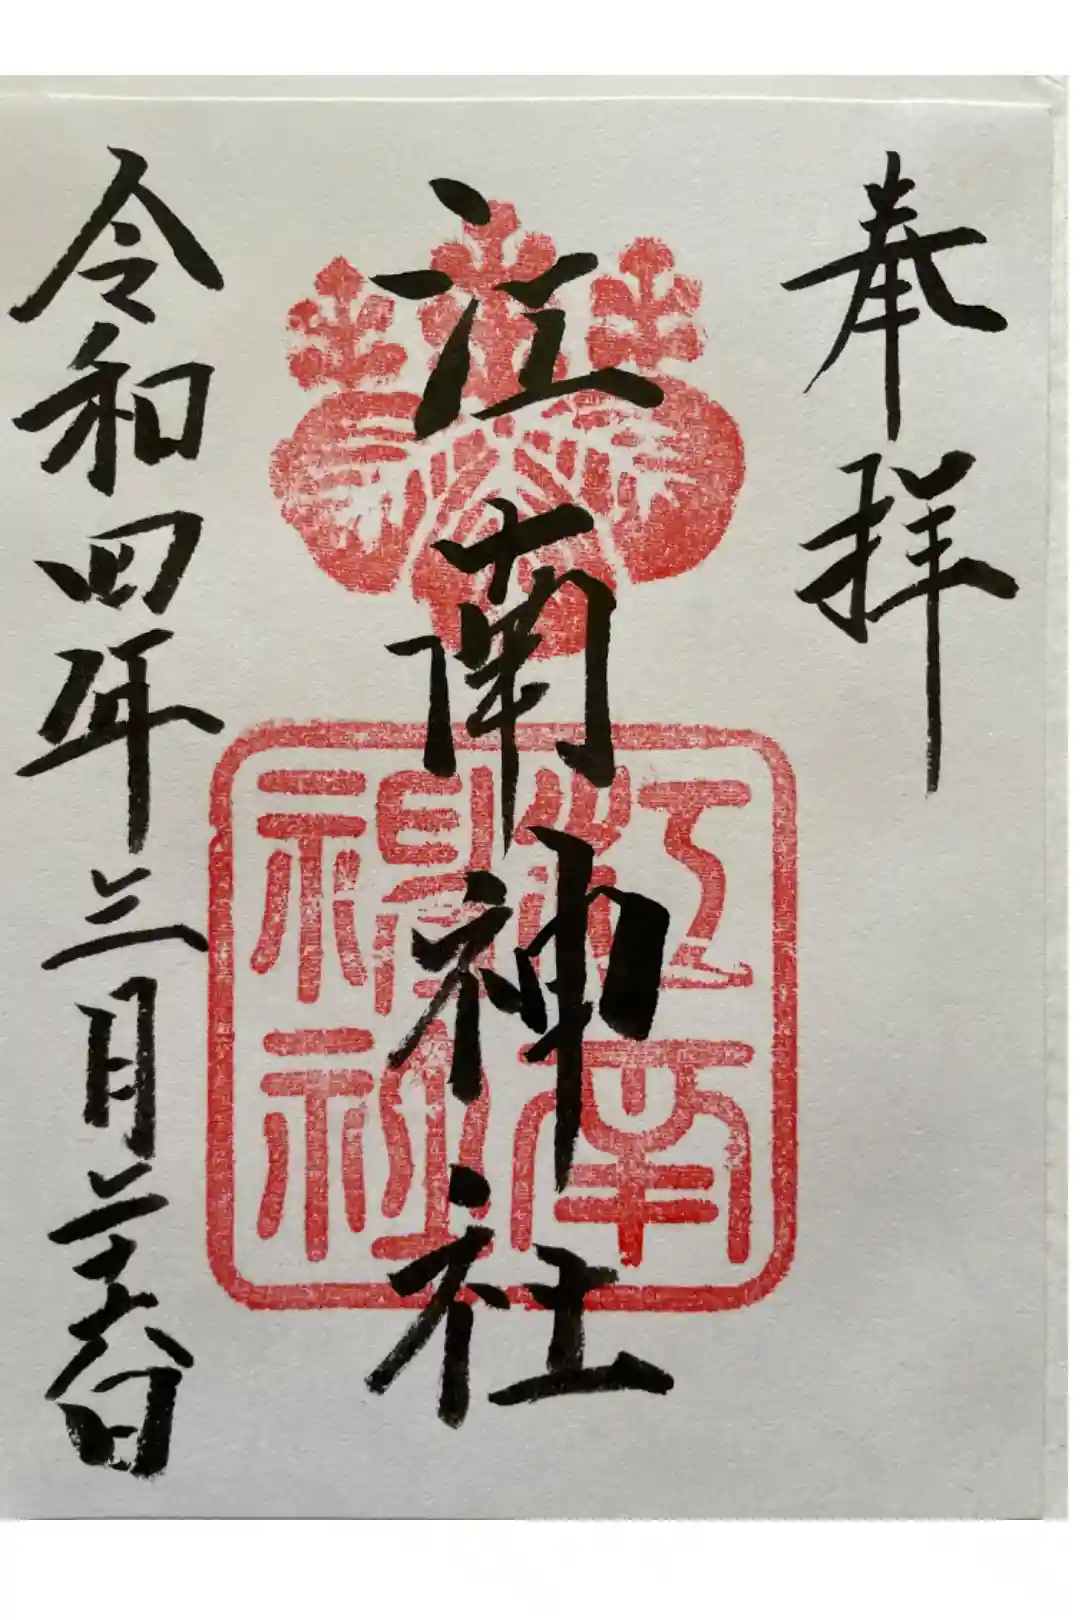 奉拝
江南神社
江南神社
令和四年三月二十六日